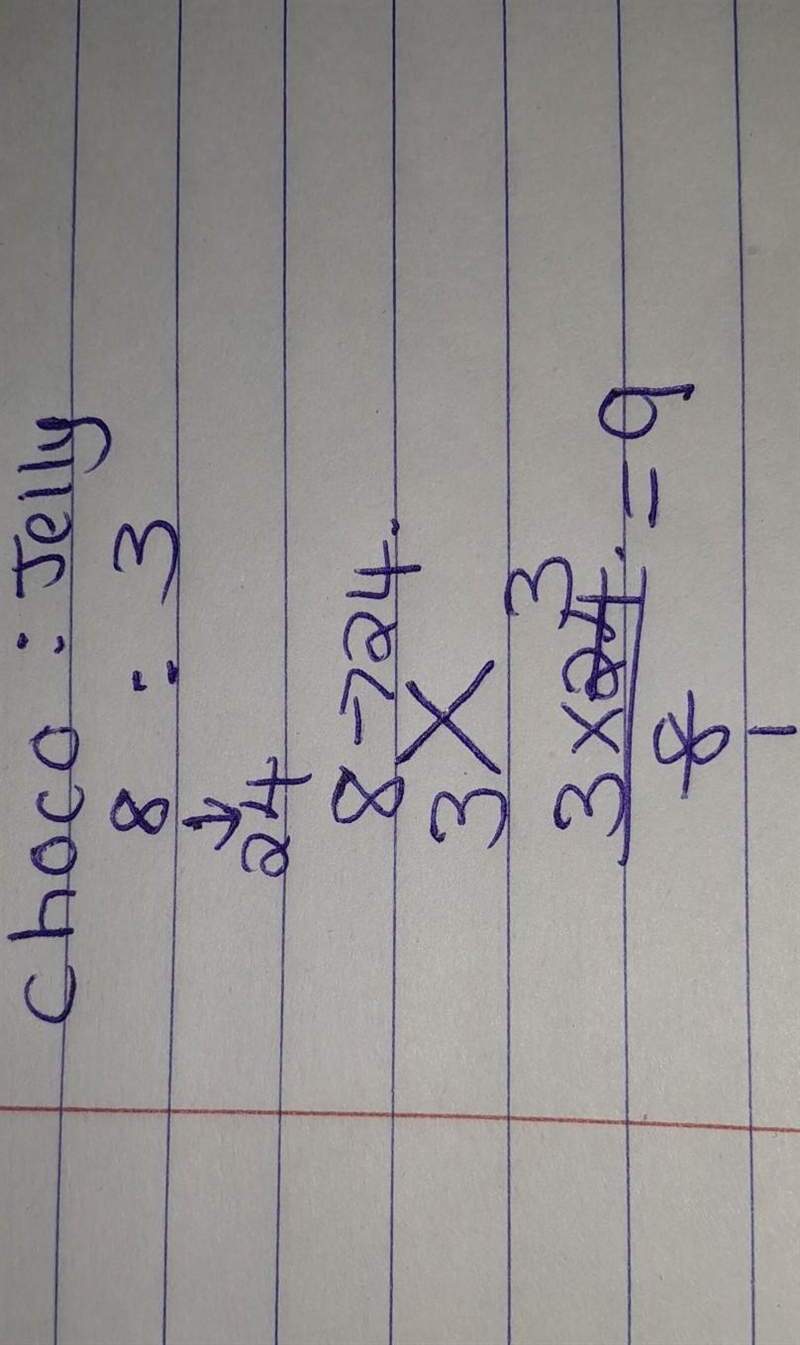 Choco : Jelly
8 : 3
↓
24
8 → 24.
3 ✕
3
3 × 24. = 9
8
1